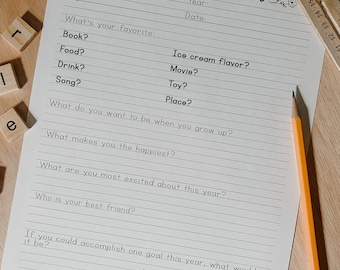 Year
Date
What's your favorite
Book?
Food?
Ice cream flavor?
Drink?
Movie?
Song?
Toy?
Place?
What do you want to be when you grow up?
What makes you the happiest?
What are you most excited about this year?
Who is your best friend?
If you could accomplish one goal this year, what would
it be?
r
l
e